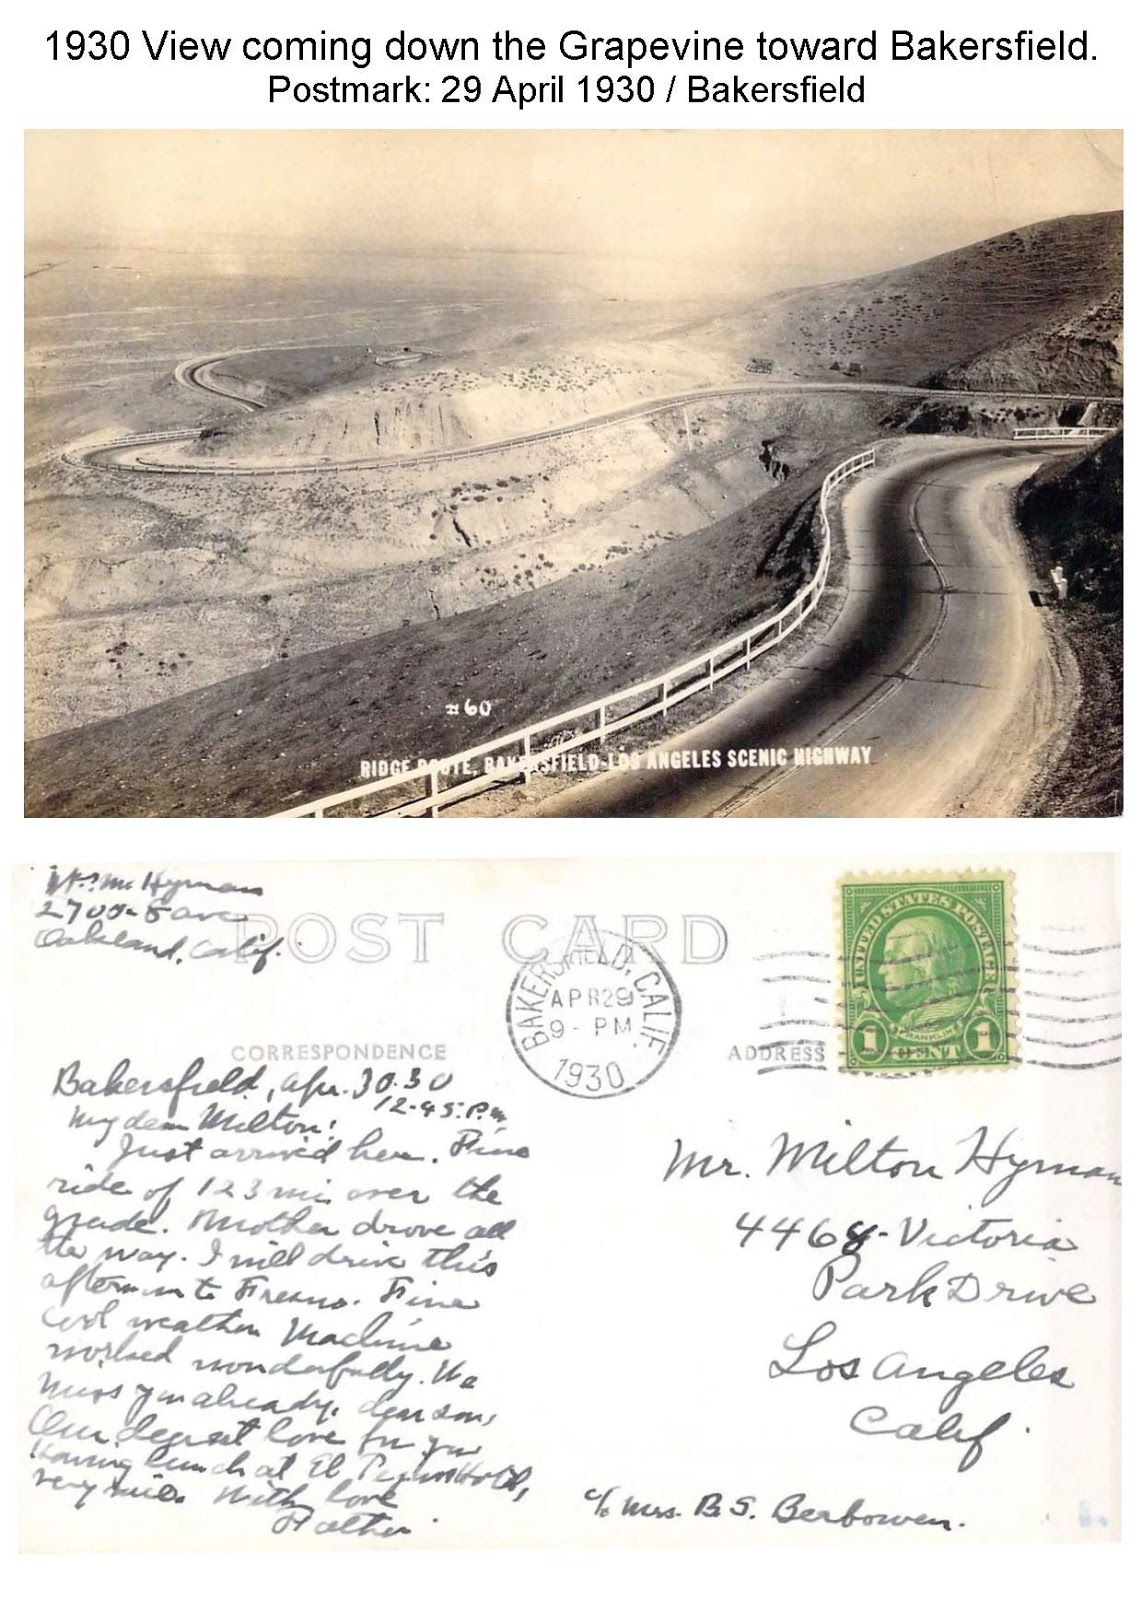 1930 View coming down the Grapevine toward Bakersfield.
Postmark: 29 April 1930 / Bakersfield
#60
RIDGE ROUTE, BAKERSFIELD-LOS ANGELES SCENIC HIGHWAY
Hyman
2700-5 ave
Oakland, Calif.
POST CARD
BAKERSFIELD, CALIF.
APR 29
9-PM
1930
UNITED STATES POSTAGE
FRANKLIN
1 CENT 1
CORRESPONDENCE
ADDRESS
Bakersfield, Apr. 30.30
12-45 P.m
My dear Milton:
Just arrived here. Fine
ride of 123 mi over the
grade. Mother drove all
the way. I will drive this
afternoon to Fresno. Fine
cool weather Machine
worked wonderfully. We
miss you already, dear son,
Our deepest love for you
Having lunch at El Tejon Hotel,
very nice. With love
Father
Mr. Milton Hyman
4468-Victoria
Park Drive
Los Angeles
Calif.
c/o Mrs. B.S. Berbower.